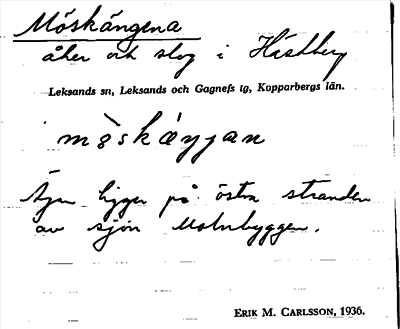 Möskängena
åker och slog i Hästberg
Leksands sn, Leksands och Gagnefs tg, Kopparbergs län.
Ägor ligger på östra stranden
av sjön Molnbyggen.
ERIK M. CARLSSON, 1936.